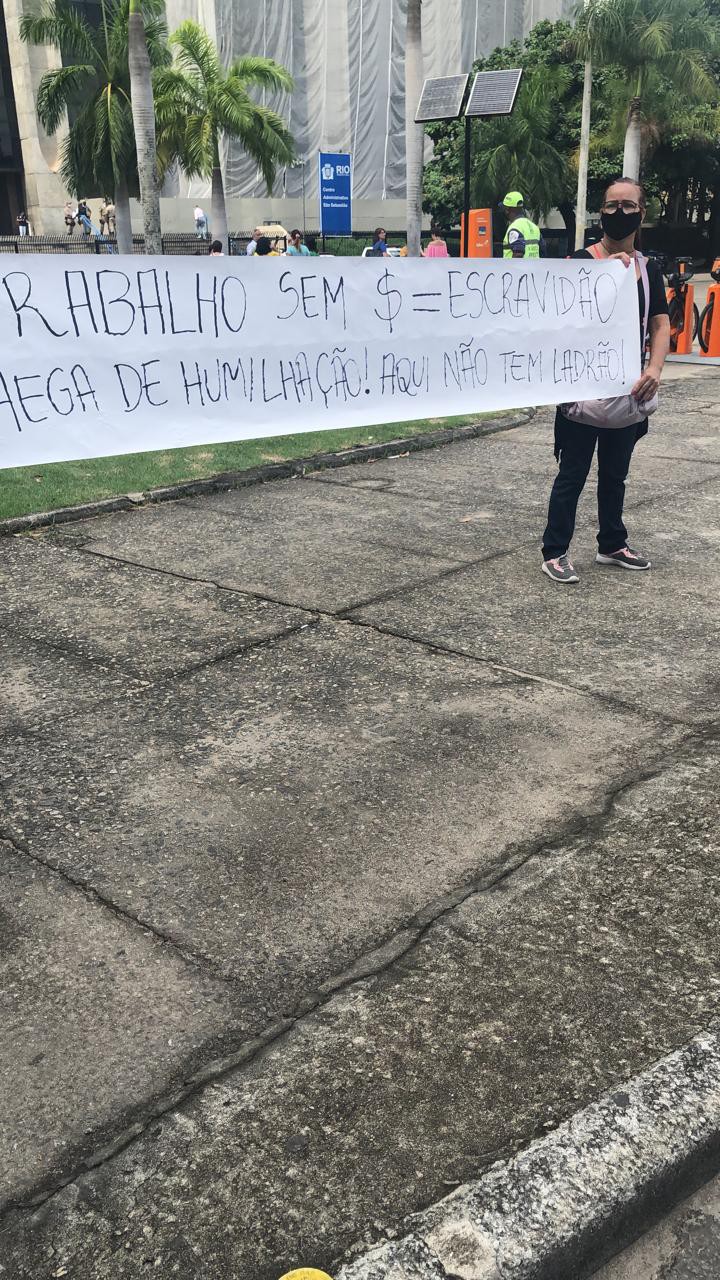 RABALHO SEM $ = ESCRAVIDÃO
HEGA DE HUMILHAÇÃO! AQUI NÃO TEM LADRÃO!
RIO
Centro
Administrativo
São Sebastião